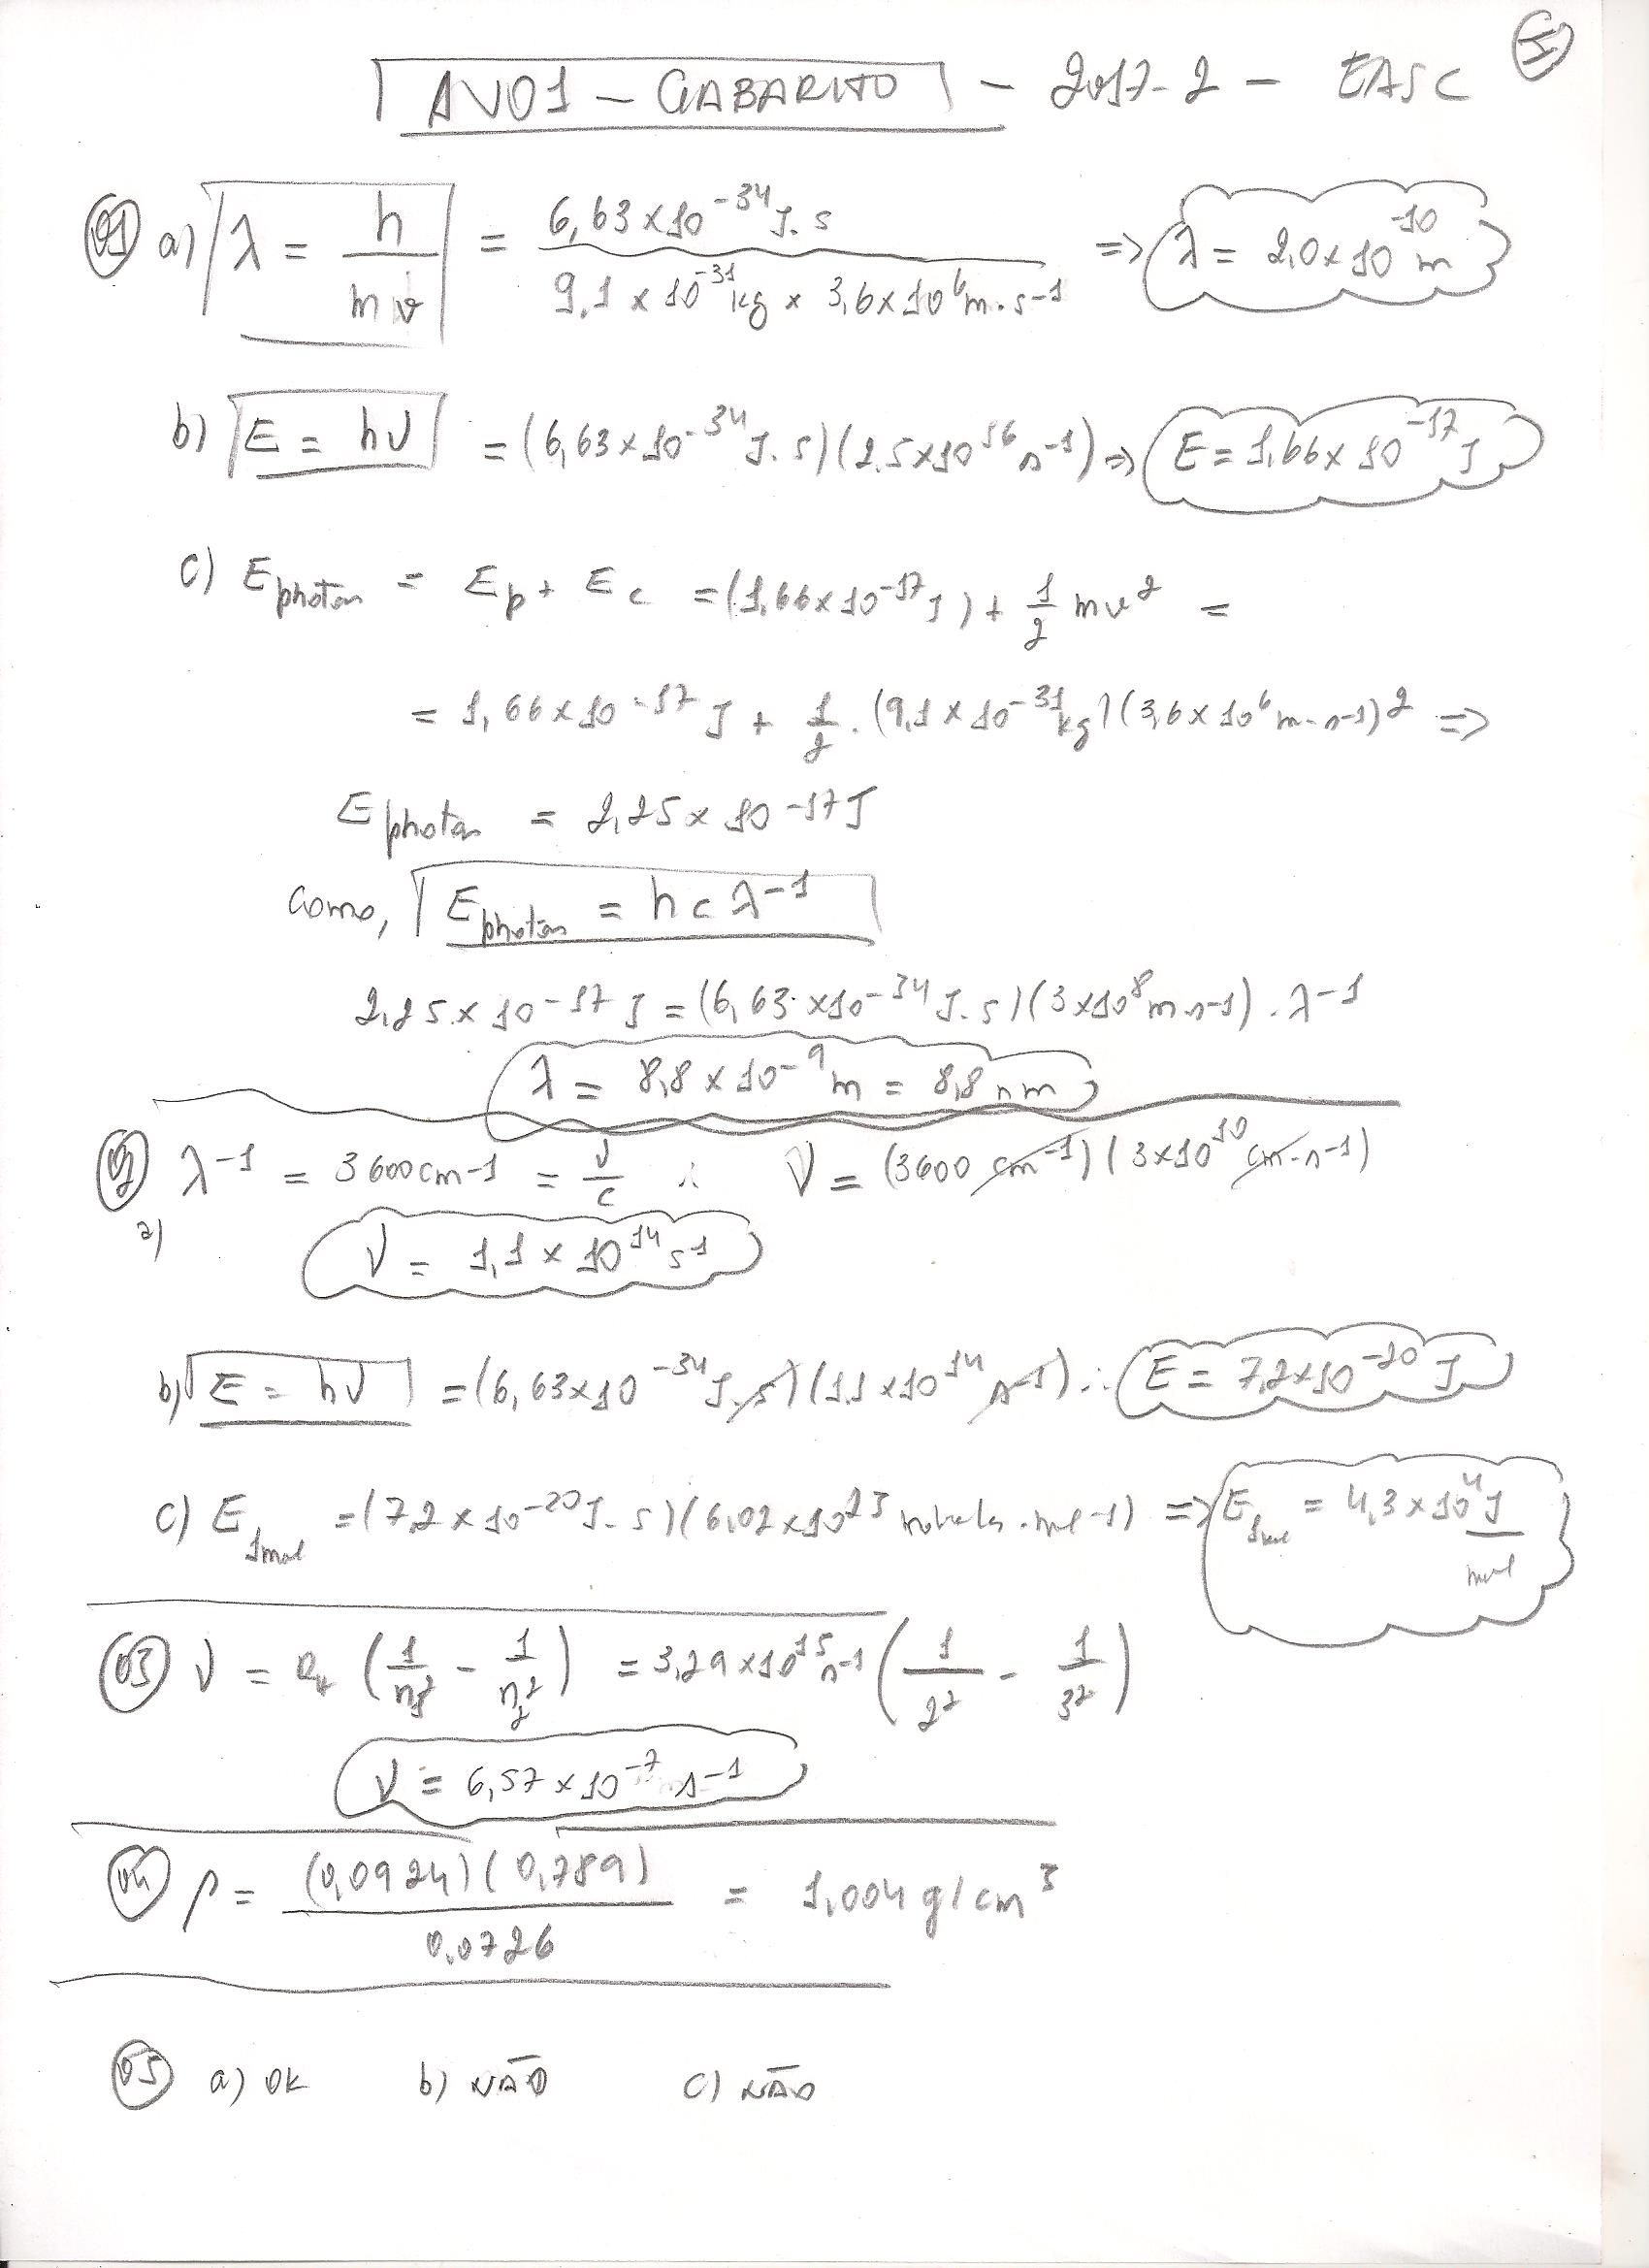 AV01 - GABARITO - 2017-2 - EASC
01 a) λ = h / mv = 6,63 x 10^-34 J.s / 9,1 x 10^-31 kg x 3,6 x 10^6 m.s-1 => λ = 2,0 x 10^-10 m
b) E = hν = (6,63 x 10^-34 J.s)(2,5 x 10^16 s-1) => E = 1,66 x 10^-17 J
c) E photon = Ep + Ec = (1,66 x 10^-17 J) + 1/2 mv^2 =
= 1,66 x 10^-17 J + 1/2 . (9,1 x 10^-31 kg)(3,6 x 10^6 m.s-1)^2 =>
E photon = 2,25 x 10^-17 J
como, E photon = hcλ^-1
2,25 x 10^-17 J = (6,63 x 10^-34 J.s)(3 x 10^8 m.s-1) . λ^-1
λ = 8,8 x 10^-9 m = 8,8 nm
02 λ^-1 = 3600 cm-1 = ν/c ∴ ν = (3600 cm-1)(3 x 10^10 cm.s-1)
a) ν = 1,1 x 10^14 s-1
b) E = hν = (6,63 x 10^-34 J.s)(1,1 x 10^14 s-1) ∴ E = 7,2 x 10^-20 J
c) E 1mol = (7,2 x 10^-20 J.s)(6,02 x 10^23 .mol-1) => E 1mol = 4,3 x 10^4 J / mol
03 ν = (1/n1^2 - 1/n2^2) = 3,29 x 10^15 s-1 (1/2^2 - 1/3^2)
ν = 6,57 x 10^-7 s-1
04 ρ = (0,0924)(0,789) / 0,0726 = 1,004 g/cm^3
05 a) OK b) NÃO c) NÃO